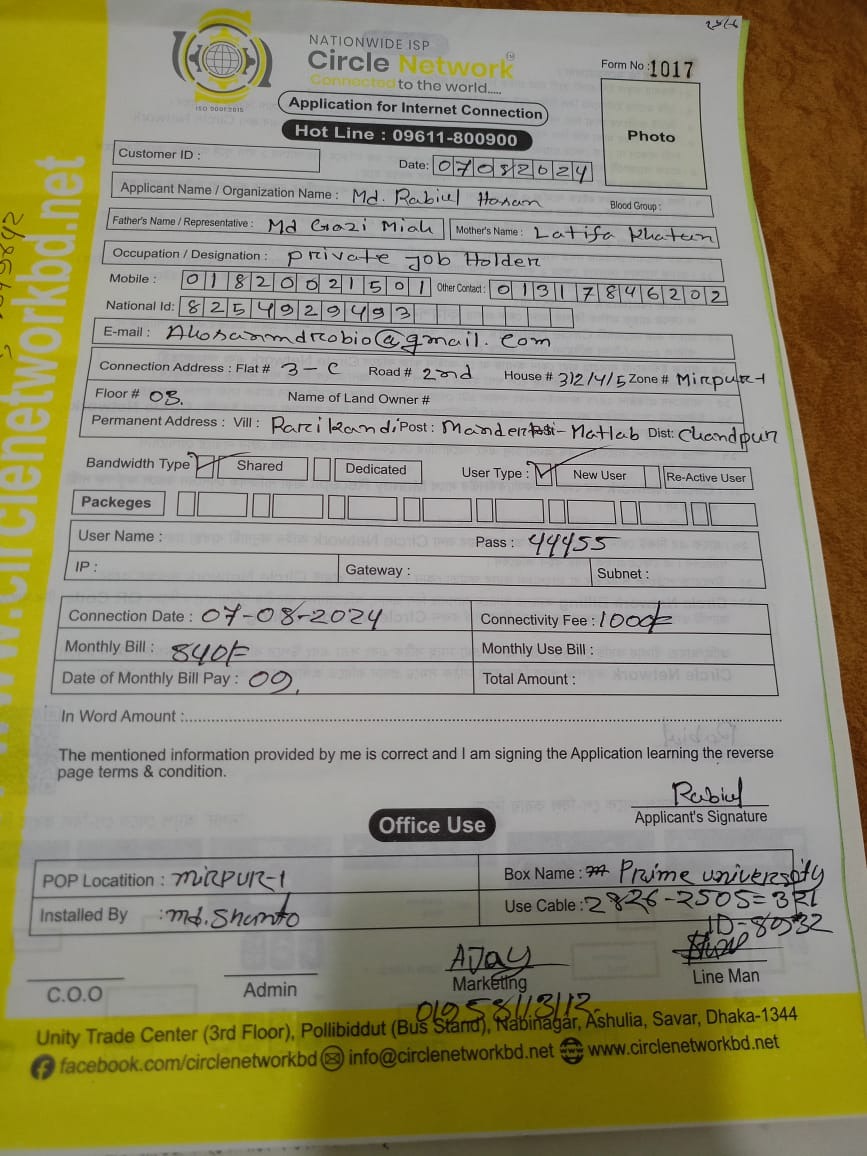 NATIONWIDE ISP
Circle Network
Connected to the world.....
ISO 9001:2015
Form No : 1017
Application for Internet Connection
Hot Line : 09611-800900
Photo
Customer ID :
Date: 07082024
Applicant Name / Organization Name : Md. Rabiul Hosan Blood Group :
Father's Name / Representative : Md Gazi Miah Mother's Name : Latifa Khatun
Occupation / Designation : private job Holder
Mobile : 01820021501 Other Contact : 01317846202
National Id: 8254929493
E-mail : Ahosanmdrobio@gmail.com
Connection Address : Flat # 3-C Road # 2nd House # 312/4/5 Zone # Mirpur-1
Floor # 03. Name of Land Owner #
Permanent Address : Vill : Parikandi Post : Mander - Matlab Dist: Chandpur
Bandwidth Type Shared Dedicated User Type : New User Re-Active User
Packeges
User Name : Pass : 44455
IP : Gateway : Subnet :
Connection Date : 07-08-2024 Connectivity Fee : 1000/=
Monthly Bill : 840/= Monthly Use Bill :
Date of Monthly Bill Pay : 09. Total Amount :
In Word Amount :
The mentioned information provided by me is correct and I am signing the Application learning the reverse
page terms & condition.
Rabiul
Applicant's Signature
Office Use
POP Locatition : MIRPUR-1 Box Name : Prime university
Installed By : Md. Shanto Use Cable : 2826-2505=321
ID-8932
AJay
C.O.O Admin Marketing Line Man
01958113113
Unity Trade Center (3rd Floor), Pollibiddut (Bus Stand), Nabinagar, Ashulia, Savar, Dhaka-1344
facebook.com/circlenetworkbd info@circlenetworkbd.net www.circlenetworkbd.net
www.circlenetworkbd.net